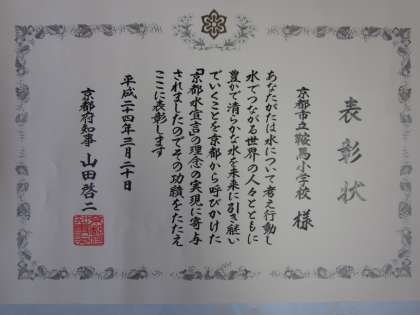 表彰状
京都市立鞍馬小学校 様
あなたがたは水について考え行動し
水でつながる世界の人々とともに
豊かで清らかな水を未来に引き継い
でいくことを京都から呼びかけた
「京都水宣言」の理念の実現に寄与
されましたのでその功績をたたえ
ここに表彰します
平成二十四年三月二十日
京都府知事 山田啓二